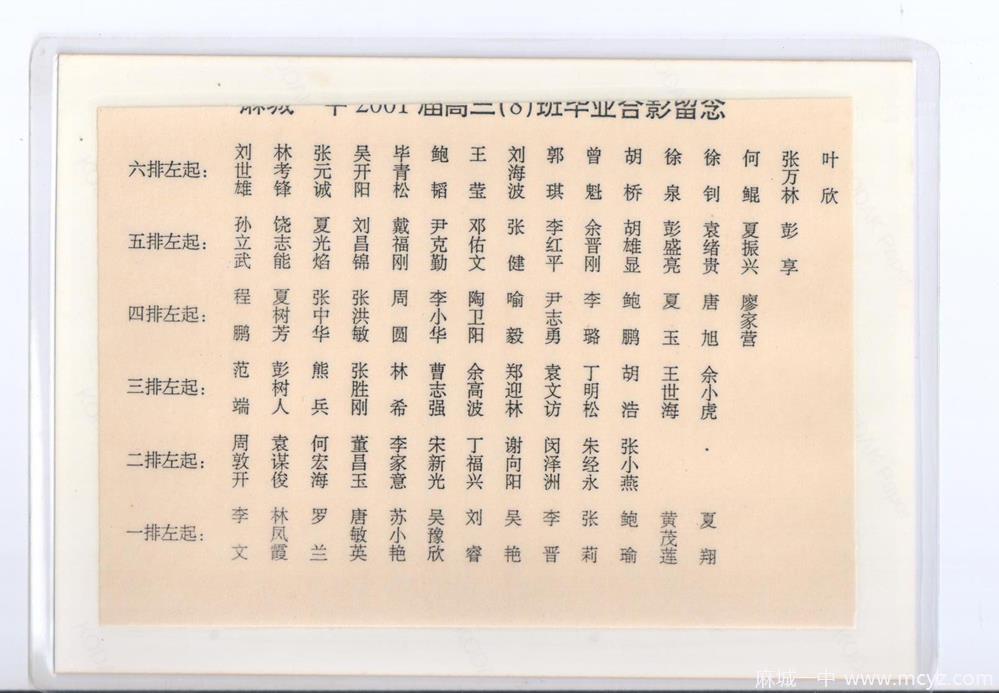 麻城一中2001届高三(8)班毕业合影留念
六排左起： 刘世雄 林考锋 张元诚 吴开阳 毕青松 鲍韬 王莹 刘海波 郭琪 曾魁 胡桥 徐泉 徐钊 何鲲 张万林 叶欣
五排左起： 孙立武 饶志能 夏光焰 刘昌锦 戴福刚 尹克勤 邓佑文 张健 李红平 余晋刚 胡雄显 彭盛亮 袁绪贵 夏振兴 彭享
四排左起： 程鹏 夏树芳 张中华 张洪敏 周圆 李小华 陶卫阳 喻毅 尹志勇 李璐 鲍鹏 夏玉 唐旭 廖家营
三排左起： 范端 彭树人 熊兵 张胜刚 林希 曹志强 余高波 郑迎林 袁文访 丁明松 胡浩 王世海 余小虎
二排左起： 周敦开 袁谋俊 何宏海 董昌玉 李家意 宋新光 丁福兴 谢向阳 闵泽洲 朱经永 张小燕
一排左起： 李文 林凤霞 罗兰 唐敏英 苏小艳 吴豫欣 刘睿 吴艳 李晋 张莉 鲍瑜 黄茂莲 夏翔
麻城一中 www.mcyz.com